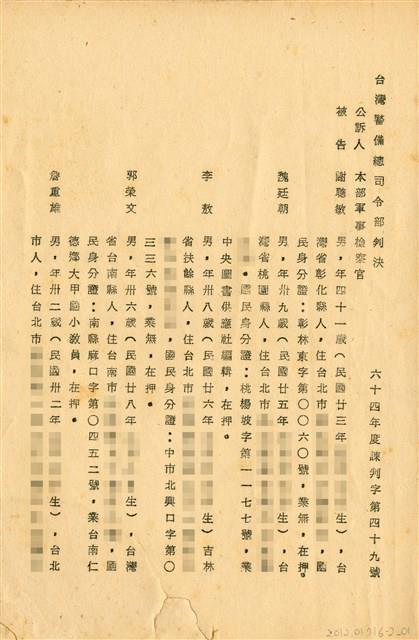 台灣警備總司令部判決
六十四年度諫判字第四十九號
公訴人 本部軍事檢察官
被告 謝聰敏 男,年四十一歲(民國廿三年 生),台
灣省彰化縣人,住台北市 ,國
民身分證:彰林東字第〇〇六〇號,業無,在押。
魏廷朝 男,年卅九歲(民國廿五年 生),台
灣省桃園縣人,住台北市
。國民身分證:桃楊坡字第一一七七號,業
中央圖書供應社編輯,在押。
李敖 男,年卅八歲(民國廿六年 生)吉林
省扶餘縣人,住台北市
,國民身分證:中市北興口字第〇
三三六號,業無,在押。
郭榮文 男,年卅六歲(民國廿八年 生),台灣
省台南縣人,住台南市 ,國
民身分證:南縣麻口字第〇四五二號,業台南仁
德鄉大甲國小教員,在押。
詹重雄 男,年卅二歲(民國卅二年 生),台北
市人,住台北市
2012.01716-2-01